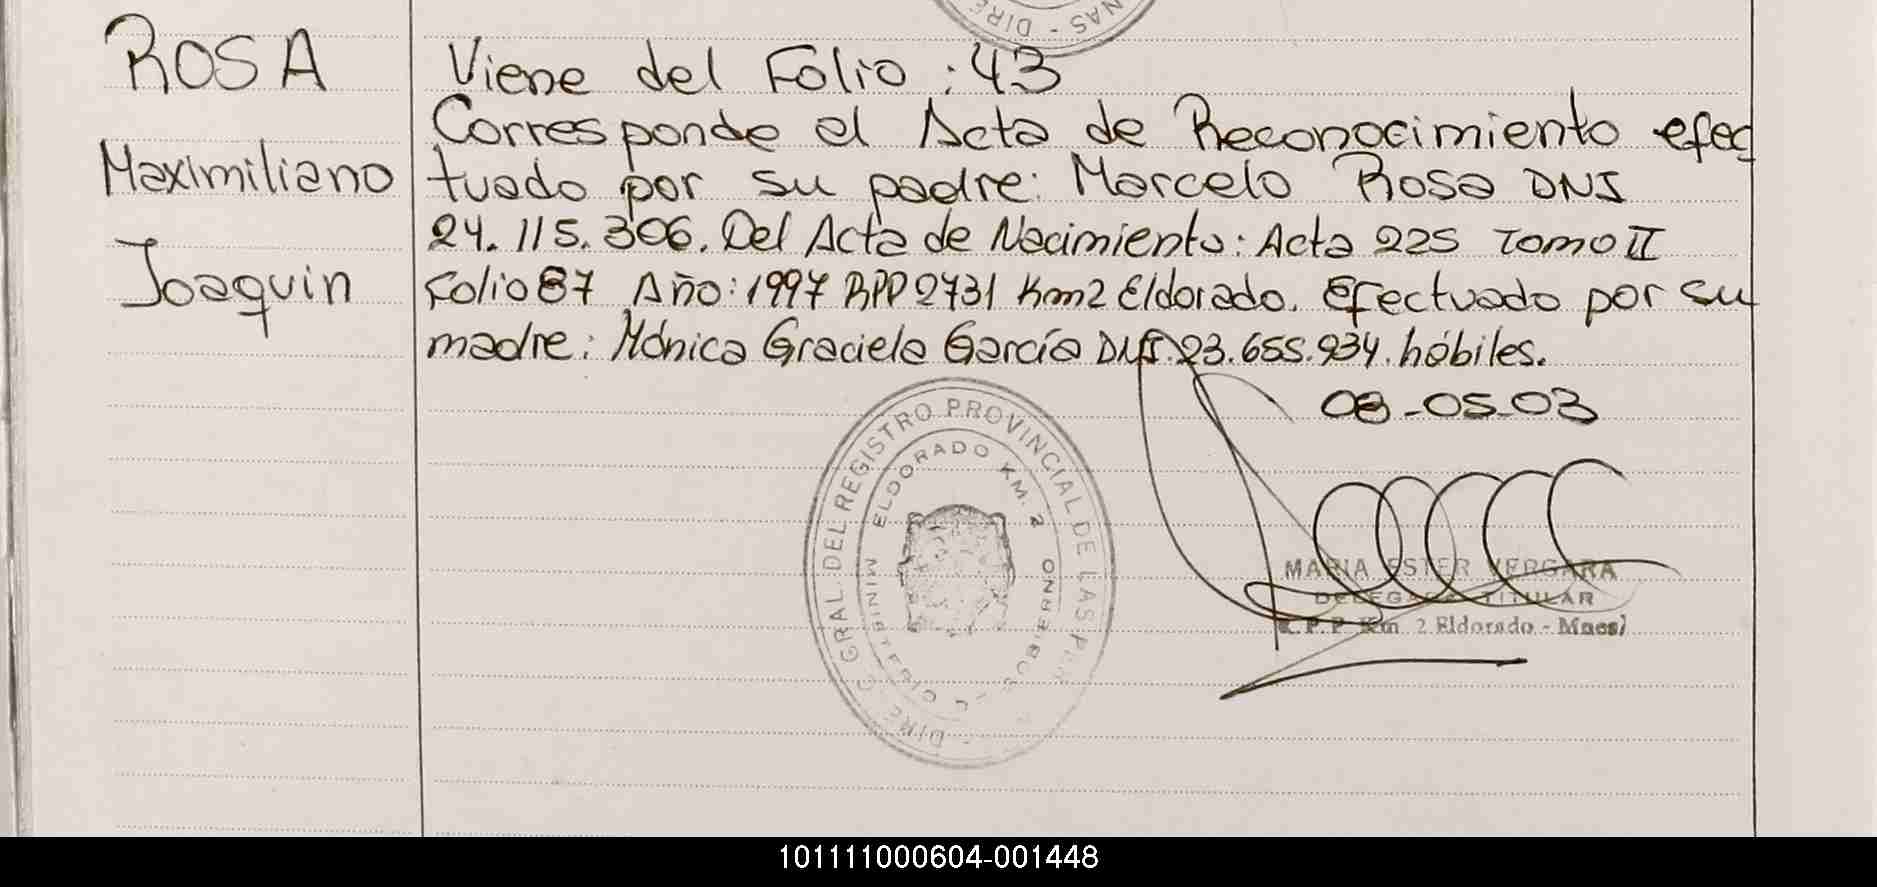 ROSA
Maximiliano
Joaquin
Viene del Folio : 43
Corresponde al Acta de Reconocimiento efec
tuado por su padre: Marcelo Rosa DNI
24.115.306. Del Acta de Nacimiento: Acta 225 Tomo II
Folio 87 Año: 1997 RPP 2731 Km2 Eldorado. Efectuado por su
madre: Mónica Graciela García DNI. 23.655.934. hábiles.
08-05-03
DIRECC. GRAL. DEL REGISTRO PROVINCIAL DE LAS PER
ELDORADO KM. 2
MINISTERIO
GOBIERNO
MARIA ESTER VERGARA
DELEGADA TITULAR
R.P.P. Km. 2 Eldorado - Mnes
101111000604-001448